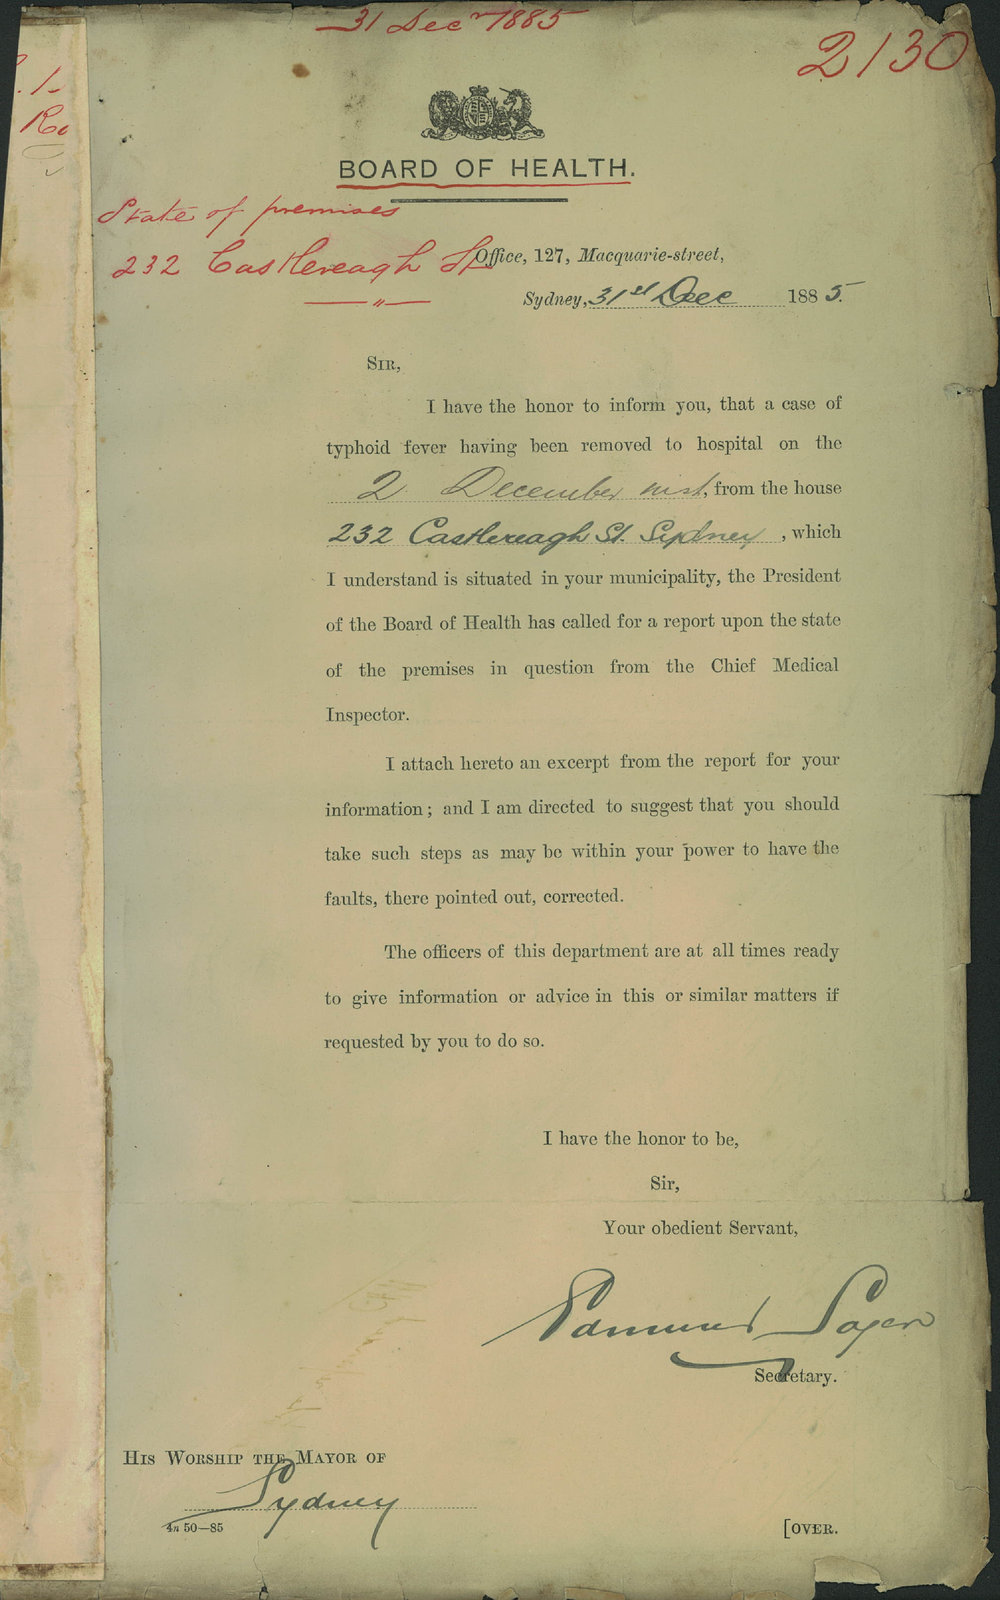 31 Decr 1885
2130
BOARD OF HEALTH.
State of premises
232 Castlereagh St
Office, 127, Macquarie-street,
Sydney, 31st Dec 1885.
SIR,
I have the honor to inform you, that a case of
typhoid fever having been removed to hospital on the
2 December inst, from the house
232 Castlereagh St. Sydney, which
I understand is situated in your municipality, the President
of the Board of Health has called for a report upon the state
of the premises in question from the Chief Medical
Inspector.
I attach hereto an excerpt from the report for your
information; and I am directed to suggest that you should
take such steps as may be within your power to have the
faults, there pointed out, corrected.
The officers of this department are at all times ready
to give information or advice in this or similar matters if
requested by you to do so.
I have the honor to be,
Sir,
Your obedient Servant,
Edmund Sager
Secretary.
HIS WORSHIP THE MAYOR OF
Sydney
4n 50—85
[OVER.